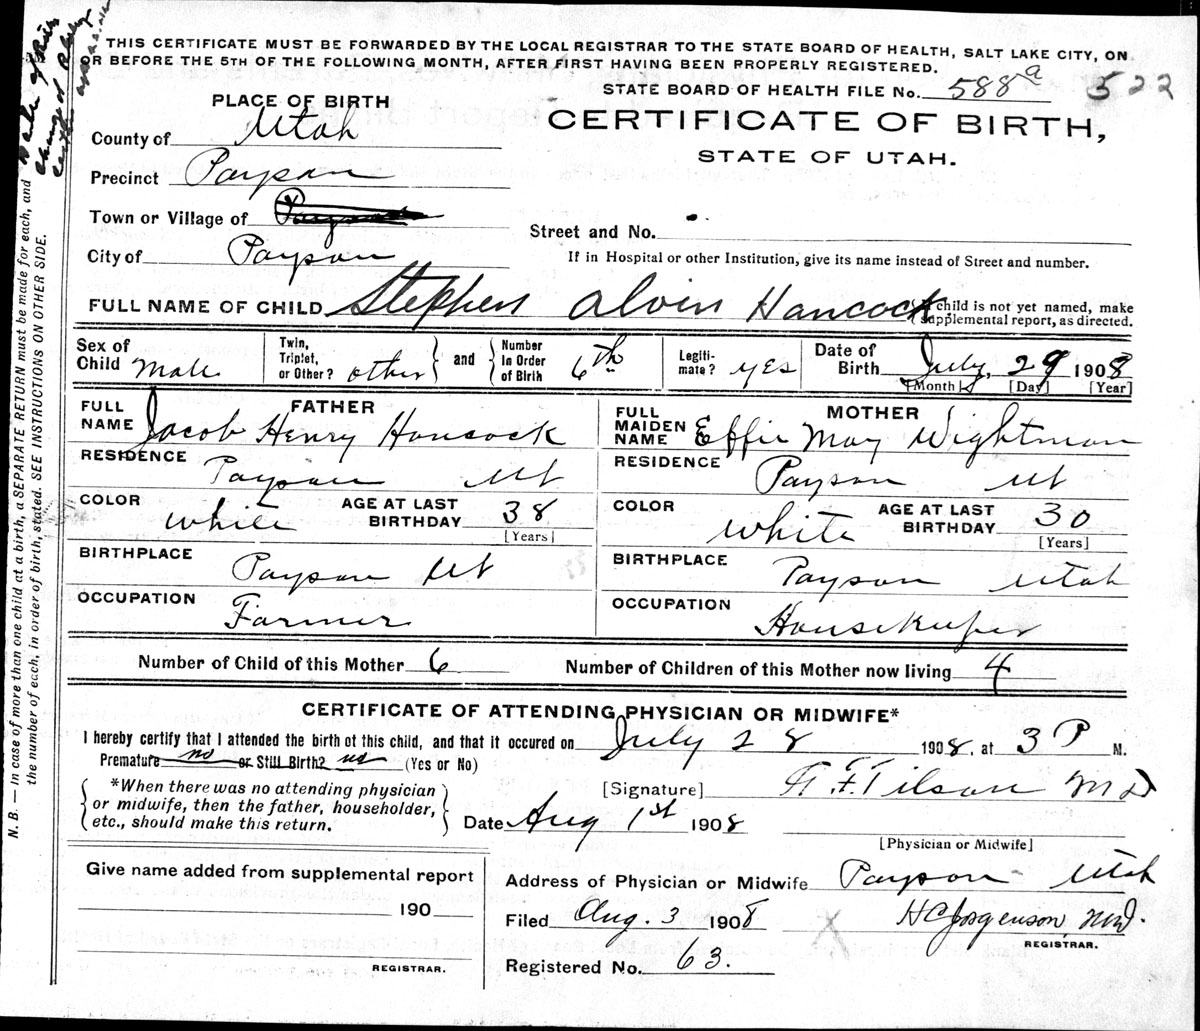 THIS CERTIFICATE MUST BE FORWARDED BY THE LOCAL REGISTRAR TO THE STATE BOARD OF HEALTH, SALT LAKE CITY, ON
OR BEFORE THE 5TH OF THE FOLLOWING MONTH, AFTER FIRST HAVING BEEN PROPERLY REGISTERED.
STATE BOARD OF HEALTH FILE No. 588a 522
PLACE OF BIRTH
CERTIFICATE OF BIRTH,
STATE OF UTAH.
County of Utah
Precinct Payson
Town or Village of Payson
Street and No.
City of Payson
If in Hospital or other Institution, give its name instead of Street and number.
FULL NAME OF CHILD Stephen Alvin Hancock { If child is not yet named, make supplemental report, as directed.
Sex of Child Male
Twin, Triplet, or Other? other } and { Number in Order of Birth 6th
Legiti-mate? yes
Date of Birth July, 29 1908
[Month] [Day] [Year]
FATHER
FULL NAME Jacob Henry Hancock
RESIDENCE Payson Ut
COLOR White AGE AT LAST BIRTHDAY 38
[Years]
BIRTHPLACE Payson Ut
OCCUPATION Farmer
MOTHER
FULL MAIDEN NAME Effie May Wightman
RESIDENCE Payson Ut
COLOR White AGE AT LAST BIRTHDAY 30
[Years]
BIRTHPLACE Payson Utah
OCCUPATION Housekeeper
Number of Child of this Mother 6 Number of Children of this Mother now living 4
CERTIFICATE OF ATTENDING PHYSICIAN OR MIDWIFE*
I hereby certify that I attended the birth of this child, and that it occured on July 28 1908, at 3 P M.
Premature no or Still Birth? no (Yes or No)
*When there was no attending physician
or midwife, then the father, householder,
etc., should make this return.
[Signature] F. Tilson MD
Date Aug 1st 1908
[Physician or Midwife]
Give name added from supplemental report
190
REGISTRAR.
Address of Physician or Midwife Payson Utah
Filed Aug. 3 1908 H C Jorgenson, MD.
REGISTRAR.
Registered No. 63.
N. B. — In case of more than one child at a birth, a SEPARATE RETURN must be made for each, and
the number of each, in order of birth, stated. SEE INSTRUCTIONS ON OTHER SIDE.